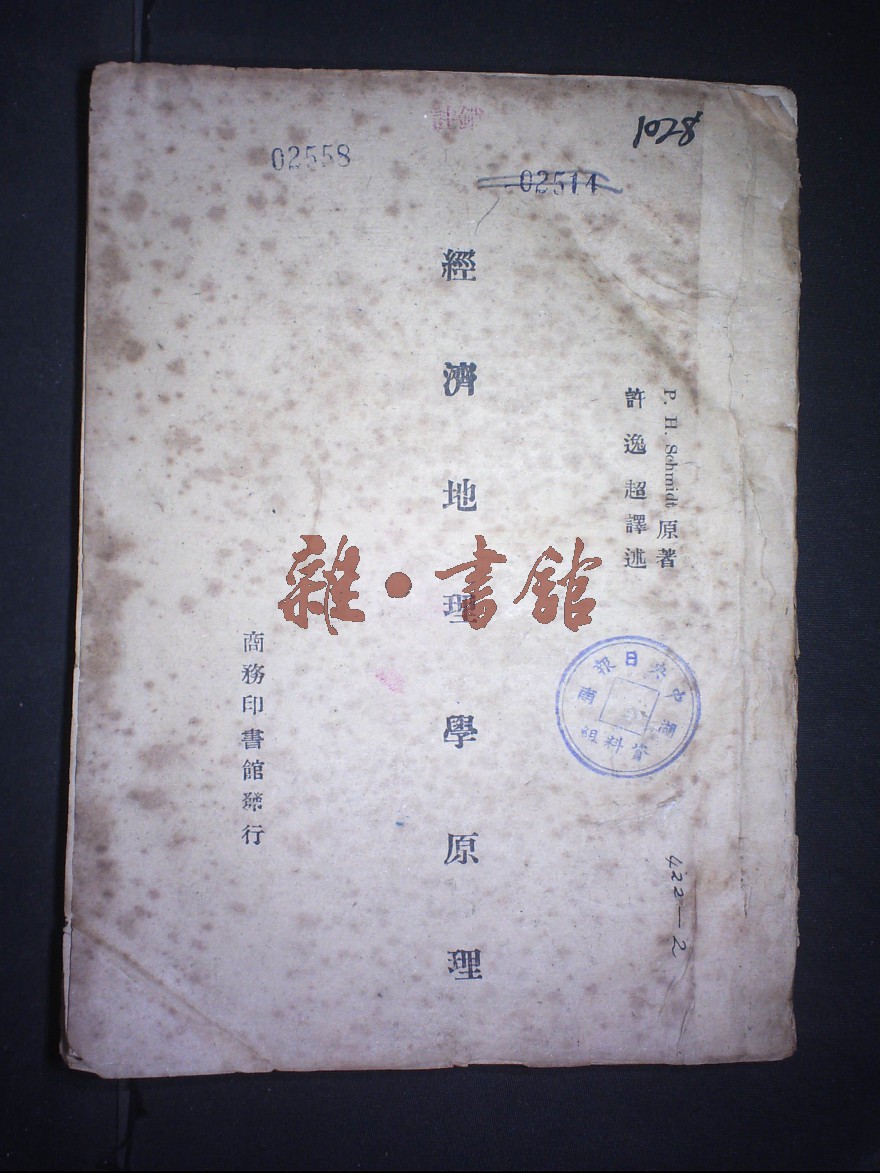 1028
註銷
02558
02514
P. H. Schmidt 原著
許逸超譯述
經濟地理學原理
商務印書館發行
雜·書館
中央日報湖南
資料組
422—2